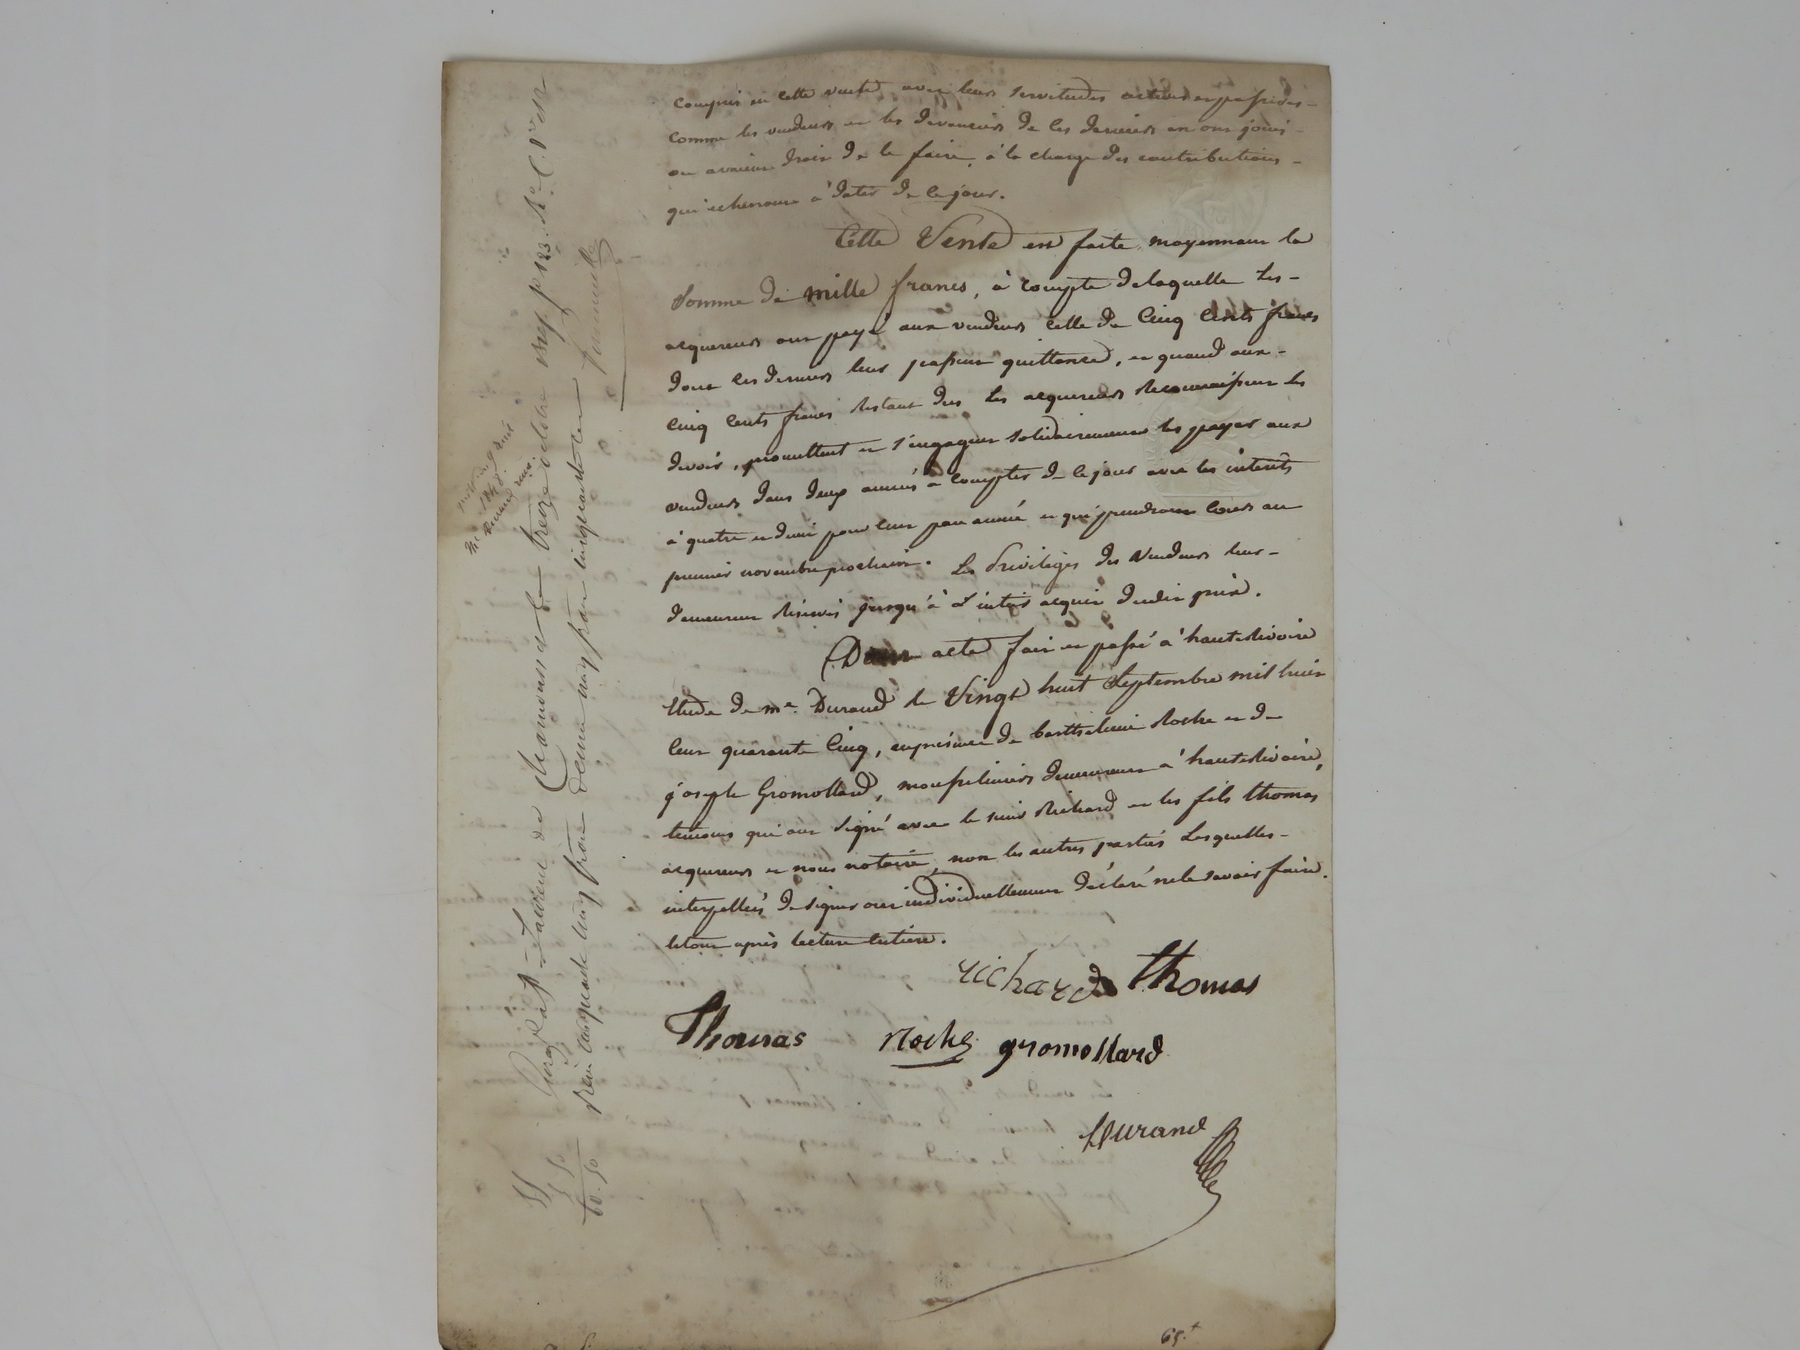 compris en cette vente, avec leurs servitudes actives et passives
comme les vendeurs et les devanciers de ces derniers en ont joui
ou avaient droit de le faire, à la charge des contributions
qui echerront à dater de ce jour.
Cette Vente est faite moyennant la
somme de mille francs, à compte de laquelle les
acquereurs ont payé aux vendeurs celle de Cinq Cents francs
dont ces derniers leur passent quittance, et quand aux
cinq cents francs restant dus les acquereurs reconnaissent les
devoir, promettent et s'engagent solidairement les payer aux
vendeurs dans deux années à compter de ce jour avec les intérêts
à quatre et demi pour cent par année et qui prendront cours au
premier novembre prochain. Les Privilèges des Vendeurs leur
demeurent réservés jusqu'à l'entier acquit dudit prix.
Dont acte fait et passé à hauterivoire
Etude de me. Durand le Vingt huit Septembre mil huit
cent quarante Cinq, en présence de barthelemi Roche et de
joseph Gromollard, demeurant à hauterivoire,
temoins qui ont signé avec le sieur Richard et les fils thomas
acquereurs et nous notaire, non les autres parties Lesquelles
interpellés de signer ont individuellement déclaré ne le savoir faire.
letout après lecture entière.
richard Thomas
Thomas Roche gromollard
Durand
65
Saint-Laurent de Chamousset le treize octobre
Reçu cinquante cinq francs decime cinq francs cinquante cen
55
5 50
60.50